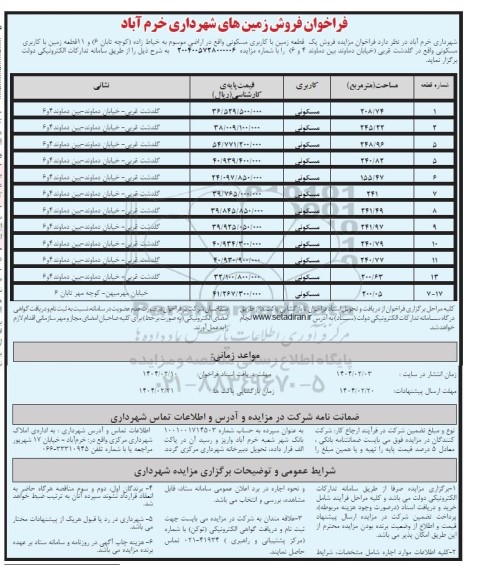 فراخوان فروش زمین های شهرداری خرم آباد
شهرداری خرم آباد در نظر دارد فراخوان مزایده فروش یک قطعه زمین با کاربری مسکونی واقع در اراضی موسوم به خیاط زاده (کوچه تابان ۶) و ۱۱قطعه زمین با کاربری
مسکونی واقع در گلدشت غربی (خیابان دماوند بین دماوند ۴ و ۶) را با شماره مزایده ۲۰۰۴۰۰۵۷۳۸۰۰۰۰۰۶ به شرح ذیل را از طریق سامانه تدارکات الکترونیکی دولت
برگزار نماید.
شماره قطعه مساحت(مترمربع) کاربری قیمت پایه‌ی کارشناسی(ریال) نشانی
۱ ۲۰۸/۷۴ مسکونی ۳۶/۵۲۹/۵۰۰/۰۰۰ گلدشت غربی-خیابان دماوند-بین دماوند۴و۶
۲ ۲۴۵/۲۲ مسکونی ۳۸/۰۰۹/۱۰۰/۰۰۰ گلدشت غربی-خیابان دماوند-بین دماوند۴و۶
۵ ۲۴۸/۹۶ مسکونی ۵۴/۷۷۱/۲۰۰/۰۰۰ گلدشت غربی-خیابان دماوند-بین دماوند۴و۶
۵ ۲۴۰/۸۲ مسکونی ۴۰/۹۳۹/۴۰۰/۰۰۰ گلدشت غربی-خیابان دماوند-بین دماوند۴و۶
۶ ۱۵۵/۴۷ مسکونی ۲۴/۰۹۷/۸۵۰/۰۰۰ گلدشت غربی-خیابان دماوند-بین دماوند۴و۶
۷ ۲۴۱ مسکونی ۳۹/۷۶۵/۰۰۰/۰۰۰ گلدشت غربی-خیابان دماوند-بین دماوند۴و۶
۸ ۲۴۱/۴۹ مسکونی ۳۹/۸۴۵/۸۵۰/۰۰۰ گلدشت غربی-خیابان دماوند-بین دماوند۴و۶
۹ ۲۴۱/۹۷ مسکونی ۳۹/۹۲۵/۰۵۰/۰۰۰ گلدشت غربی-خیابان دماوند-بین دماوند۴و۶
۱۰ ۲۴۰/۷۹ مسکونی ۴۰/۹۳۴/۳۰۰/۰۰۰ گلدشت غربی-خیابان دماوند-بین دماوند۴و۶
۱۱ ۲۴۰/۷۷ مسکونی ۴۰/۹۳۰/۹۰۰/۰۰۰ گلدشت غربی-خیابان دماوند-بین دماوند۴و۶
۱۳ ۲۰۰/۶۳ مسکونی ۳۲/۱۰۰/۸۰۰/۰۰۰ گلدشت غربی-خیابان دماوند-بین دماوند۴و۶
۷-۱۷ ۲۰۰/۰۵ مسکونی ۴۱/۲۶۷/۳۰۰/۰۰۰ خیابان شهرمیهن- کوچه مهر تابان ۶
کلیه مراحل برگزاری فراخوان از دریافت و تحویل اسناد
www.setadiran.ir
مواعد زمانی:
زمان انتشار در سایت : ۱۴۰۴/۰۲/۰۳ مهلت دریافت اسناد فراخوان: ۱۴۰۴/۰۲/۱۰
مهلت ارسال پیشنهادات: ۱۴۰۴/۰۲/۲۰ زمان بازگشایی پاکت ها: ۱۴۰۴/۰۲/۲۱
ضمانت نامه شرکت در مزایده و آدرس و اطلاعات تماس شهرداری
نوع و مبلغ تضمین شرکت در فرآیند ارجاع کار: شرکت
کنندگان در مزایده فوق می بایست ضمانتنامه بانکی ،
معادل ۵ درصد قیمت پایه را تهیه و یا همین مبلغ را
به عنوان سپرده به حساب شماره ۱۰۰۰۱۰۰۱۷۱۴۵۰۳
بانک شهر شعبه خرم آباد واریز و رسید آن در پاکت
الف قرار داده، تحویل دبیرخانه شهرداری مرکزی گردد.
اطلاعات تماس و آدرس شهرداری : به اداره‌ی املاک
شهرداری مرکزی واقع در: خرم‌آباد - خیابان ۱۷ شهریور
مراجعه یا با شماره تلفن ۰۶۶-۳۳۳۱۰۹۴۵
شرایط عمومی و توضیحات برگزاری مزایده شهرداری
۱-برگزاری مزایده صرفا از طریق سامانه تدارکات
الکترونیکی دولت می باشد و کلیه مراحل فرآیند شامل
خرید و دریافت اسناد (درصورت وجود هزینه مربوطه)،
پرداخت تضمین شرکت در مزایده ارسال پیشنهاد
قیمت و اطلاع از وضعیت برنده بودن مزایده محترم از
این طریق امکان پذیر می باشد.
۲-کلیه اطلاعات موارد اجاره شامل مشخصات، شرایط
و نحوه اجاره در برد اعلان عمومی سامانه ستاد، قابل
مشاهده، بررسی و انتخاب می باشد.
۳-علاقه مندان به شرکت در مزایده می بایست جهت
ثبت نام و دریافت گواهی الکترونیکی (توکن) با شماره
(مرکز پشتیبانی و راهبری ) ۴۱۹۳۴-۰۲۱ تماس
حاصل نمایند.
۴- برندگان اول، دوم و سوم مناقصه هرگاه حاضر به
انعقاد قرارداد نشوند سپرده آنان به ترتیب ضبط خواهد
شد.
۵- شهرداری در رد یا قبول هریک از پیشنهادات مختار
می باشد.
۶- هزینه چاپ آگهی در روزنامه و سامانه ستاد بر عهده
برنده مزایده می باشد.